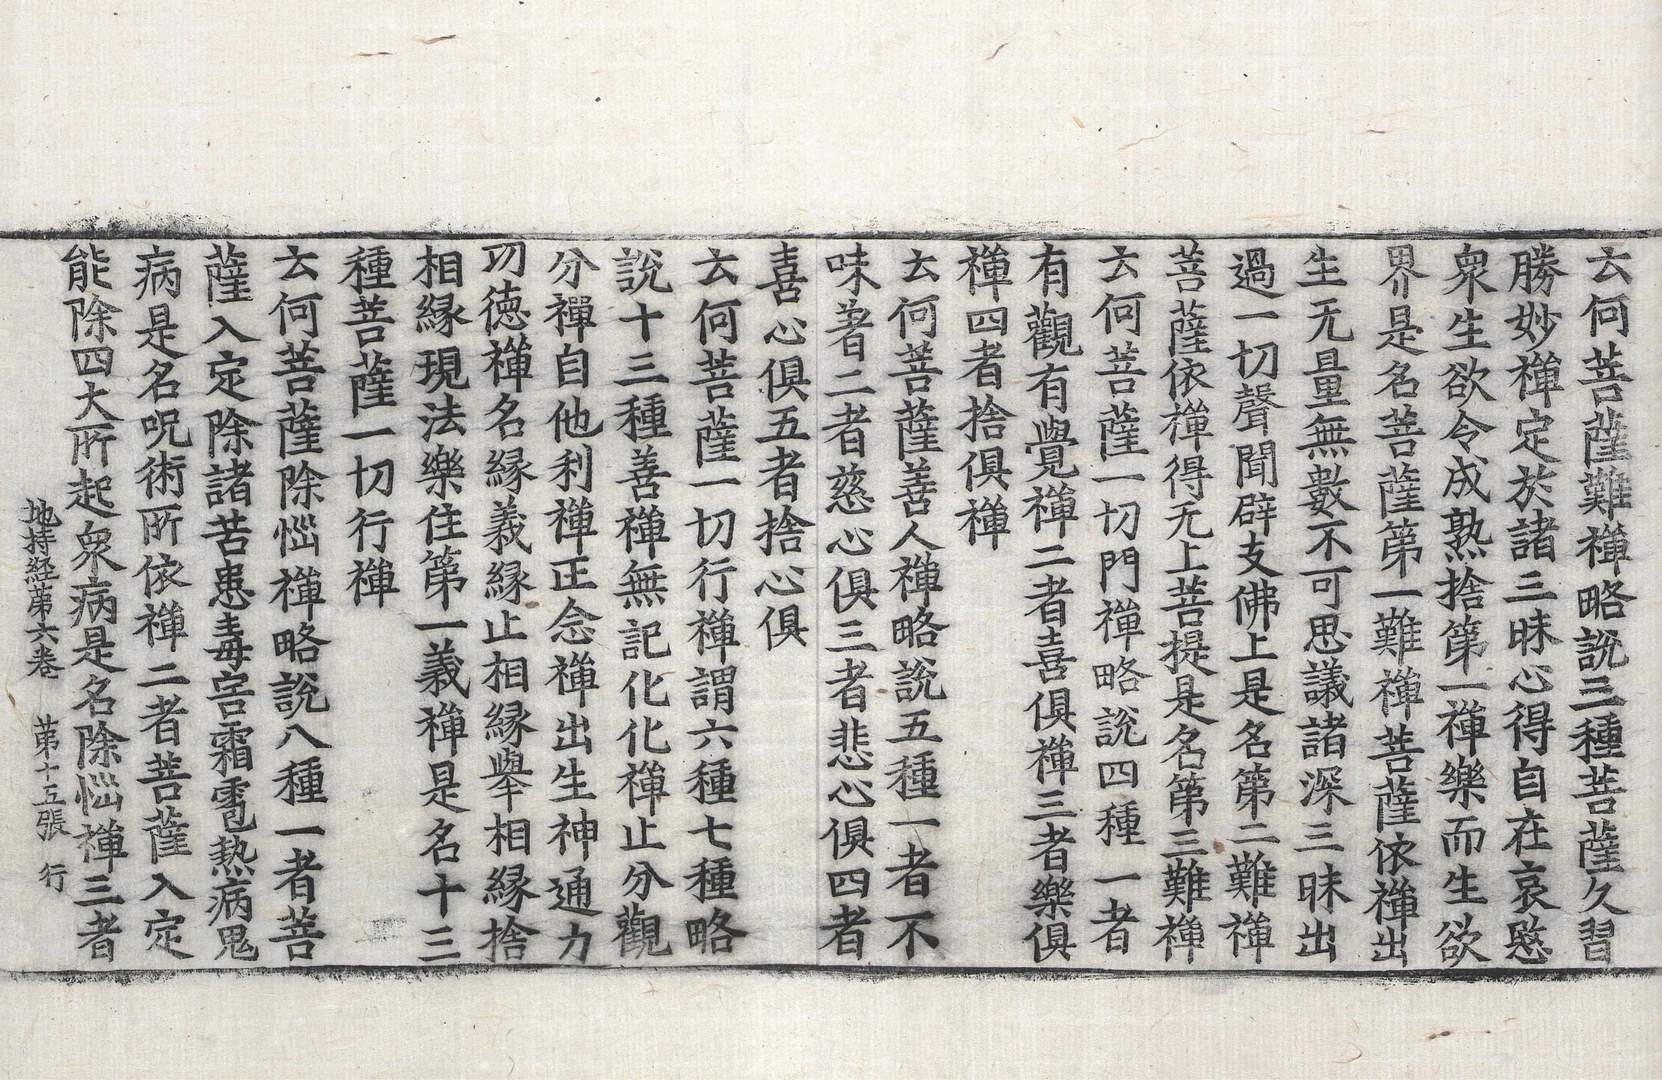 云何菩薩難禪略說三種菩薩久習
勝妙禪定於諸三昧心得自在哀愍
衆生欲令成熟捨第一禪樂而生欲
界是名菩薩第一難禪菩薩依禪出
生无量無數不可思議諸深三昧出
過一切聲聞辟支佛上是名第二難禪
菩薩依禪得无上菩提是名第三難禪
云何菩薩一切門禪略說四種一者
有觀有覺禪二者喜俱禪三者樂俱
禪四者捨俱禪
云何菩薩善人禪略說五種一者不
味著二者慈心俱三者悲心俱四者
喜心俱五者捨心俱
云何菩薩一切行禪謂六種七種略
說十三種善禪無記化化禪止分觀
分禪自他利禪正念禪出生神通力
功德禪名緣義緣止相緣舉相緣捨
相緣現法樂住第一義禪是名十三
種菩薩一切行禪
云何菩薩除惱禪略說八種一者菩
薩入定除諸苦患毒害霜雹熱病鬼
病是名呪術所依禪二者菩薩入定
能除四大所起衆病是名除惱禪三者
地持経苐六卷 苐十五張 行